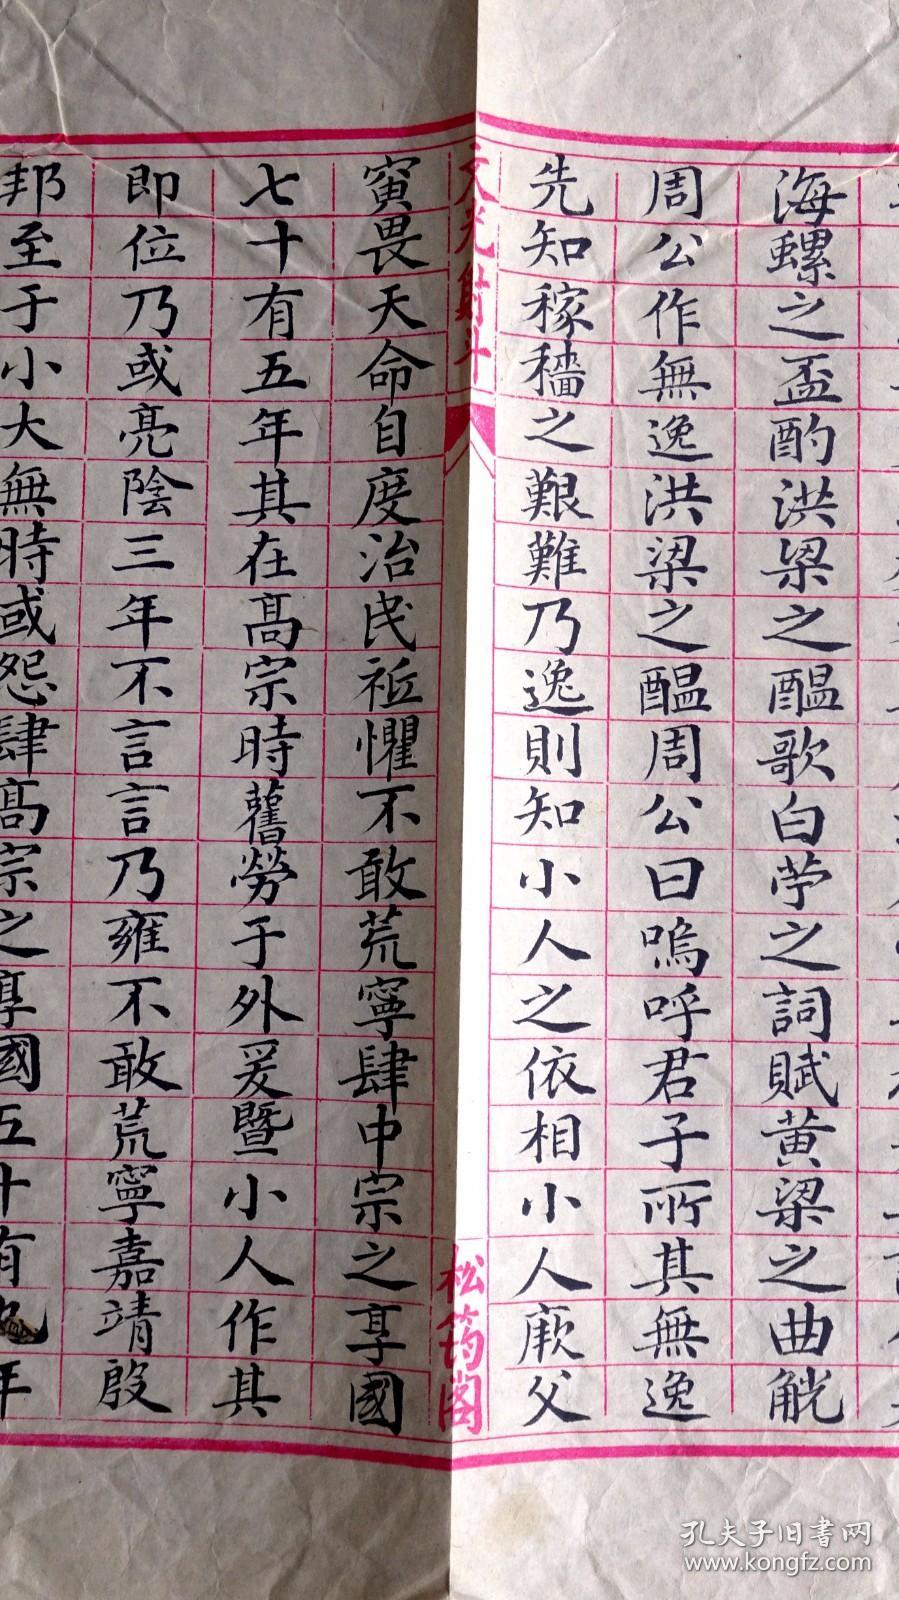 海螺之盃酌洪梁之醞歌白苧之詞賦黄梁之曲觥
周公作無逸洪梁之醞周公曰嗚呼君子所其無逸
先知稼穡之艱難乃逸則知小人之依相小人厥父
文光射斗
松筠閣
寅畏天命自度治民祗懼不敢荒寧肆中宗之享國
七十有五年其在高宗時舊勞于外爰暨小人作其
即位乃或亮陰三年不言言乃雍不敢荒寧嘉靖殷
邦至于小大無時或怨肆高宗之享國五十有九年
孔夫子旧書网
www.kongfz.com